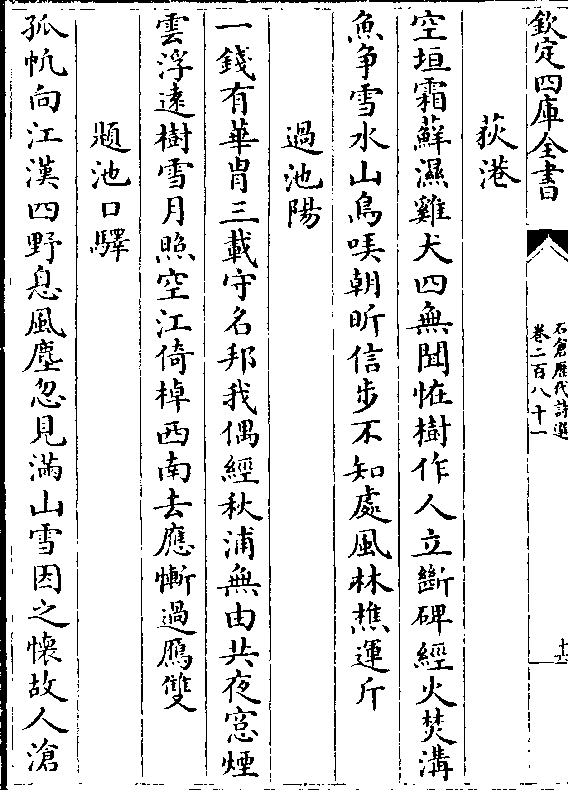 欽定四庫全書
石倉歷代詩選
卷二百八十一
荻港
空垣霜蘚濕雞犬四無聞恠樹作人立斷碑經火焚溝
魚争雪水山鳥嘆朝昕信步不知處風林樵運斤
過池陽
一錢有華胄三載守名邦我偶經秋浦無由共夜窓煙
雲浮遠樹雪月照空江倚棹西南去應慚過鴈雙
題池口驛
孤帆向江漢四野息風塵忽見滿山雪因之懷故人滄